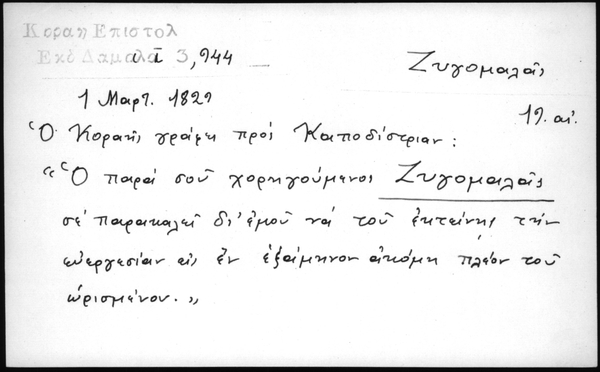 Κοραη Επιστολ
Εκδ Δαμαλα 3, 944
Ζυγομαλᾶς
1 Μαρτ. 1829
19. αἰ.
Ὁ Κοραῆς γράφει πρὸς Καποδίστριαν:
"Ὁ παρὰ σοῦ χορηγούμενος Ζυγομαλᾶς
σὲ παρακαλεῖ δι' ἐμοῦ νὰ τοῦ ἐκτείνῃς τὴν
εὐεργεσίαν εἰς ἓν ἑξάμηνον ἀκόμη πλέον τοῦ
ὡρισμένου."